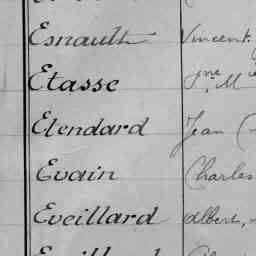 Esnault Vincent
Etasse Jne M
Etendard Jean
Evain Charles
Eveillard Albert,